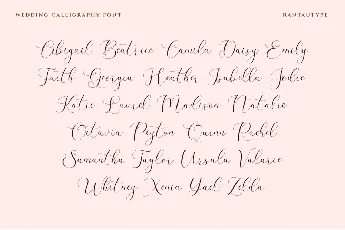 WEDDING CALLIGRAPHY FONT
RANTAUTYPE
Abigail Beatrice Camila Daisy Emily
Faith Georgia Heather Isabella Jodie
Katie Laurel Madison Natalie
Octavia Peyton Quinn Rachel
Samantha Taylor Ursula Valarie
Whitney Xenia Yael Zelda